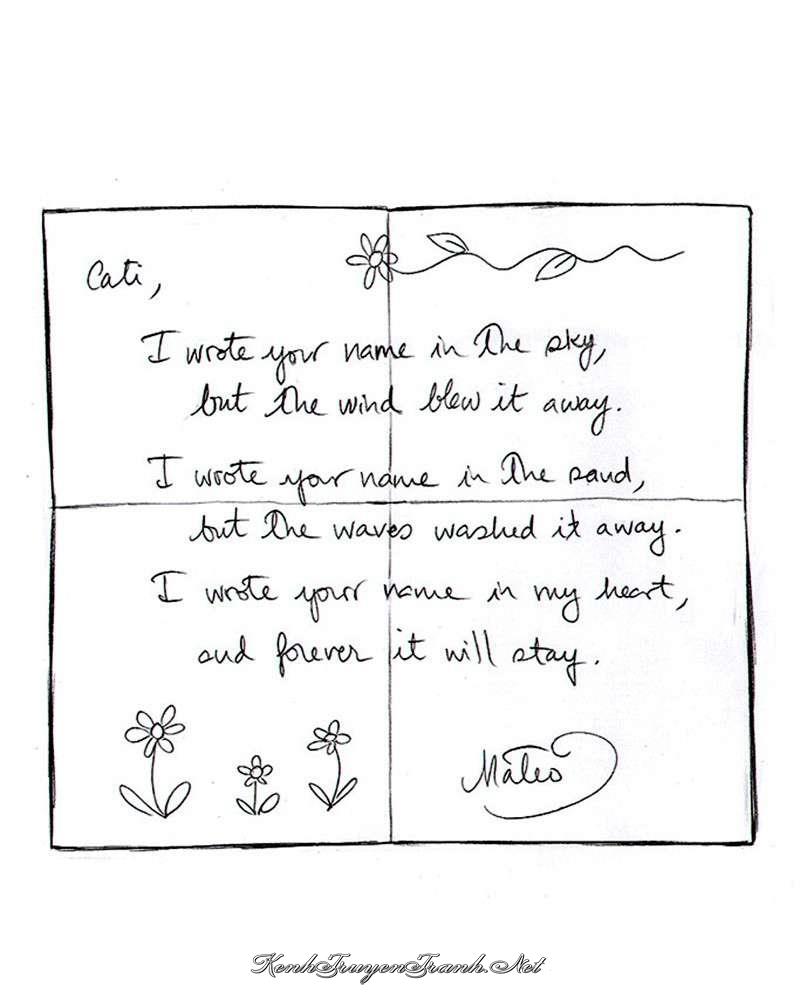 Cati,
I wrote your name in the sky,
but the wind blew it away.
I wrote your name in the sand,
but the waves washed it away.
I wrote your name in my heart,
and forever it will stay.
Mateo
KenhTruyenTranh.Net